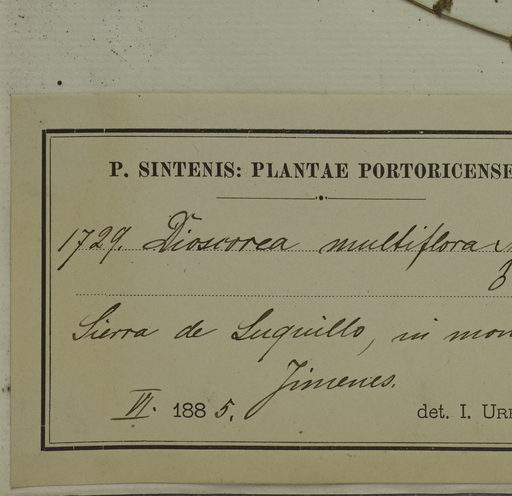 P. SINTENIS: PLANTAE PORTORICENSE
1729. Dioscorea multiflora
Sierra de Luquillo, in mon
Jimenes.
VI. 1885. det. I. URB